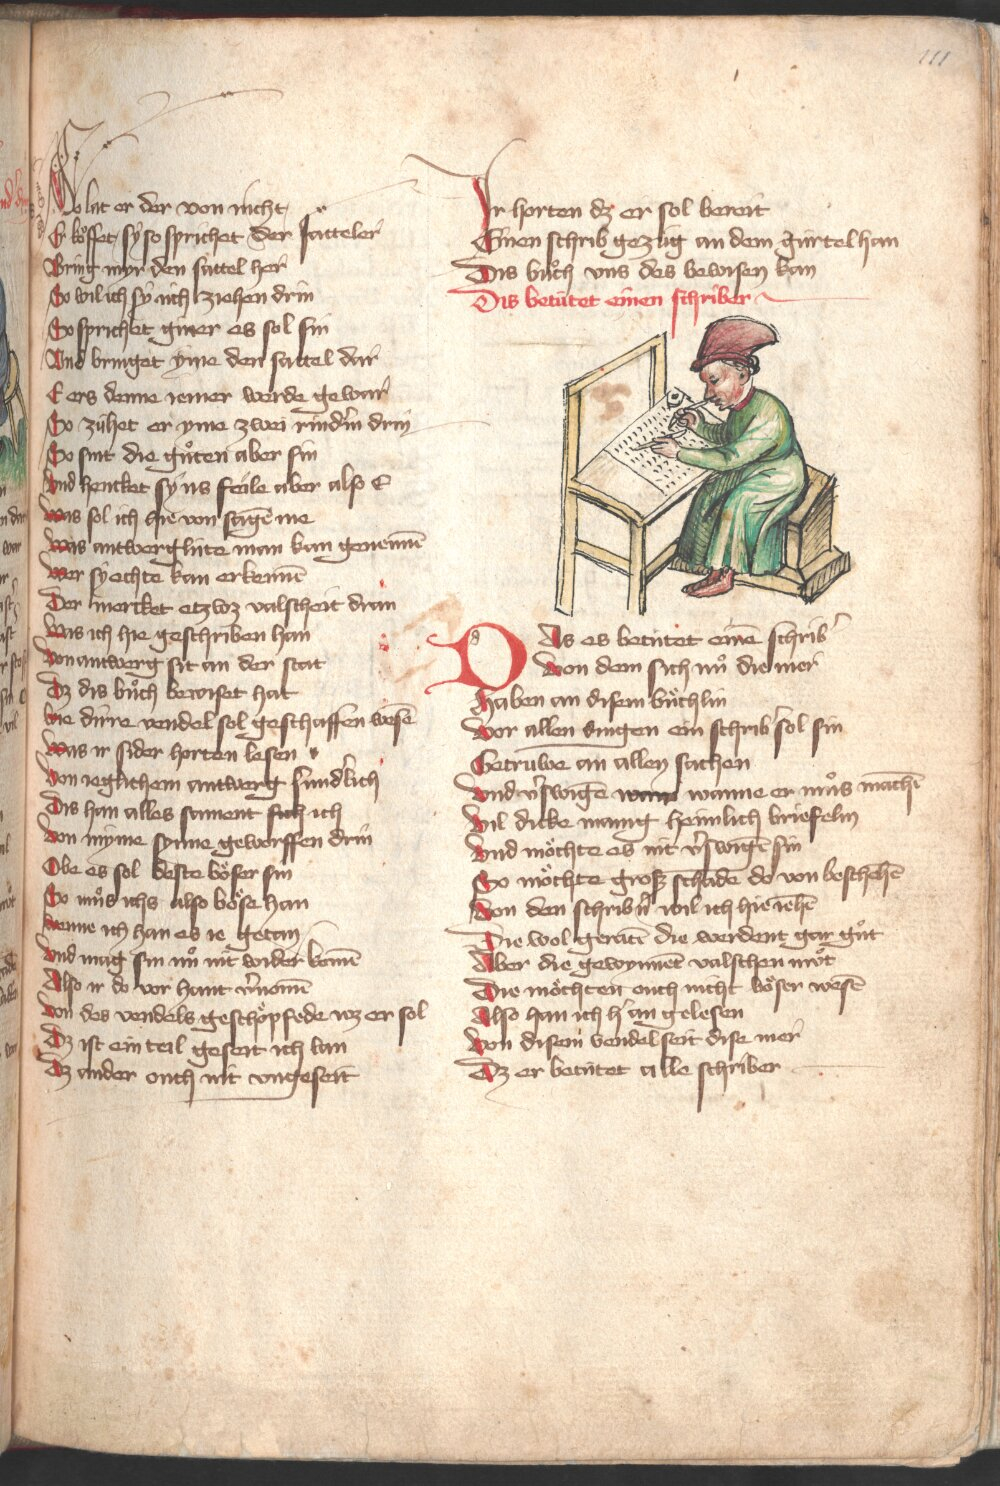 111
So lat er der von nicht
Er köffet sy so sprichet der satteler
Bring myr den sattel her
So wil ich sy uch ziehen drin
So sprichet giner es sol sin
Vnd bringet yme den sattel dar
E ers denne iemer werde gewar
So zühet er yme zwei rindrin drin
So sint die gůten aber sin
Vnd hencket sy ns feile aber also E
Was sol ich hie von sagē me
Was antwerglüte man kan genennē
Wer sy echte kan erkennē
Der mercket etzwz valscheit dran
Was ich hie geschriben han
Von antwerg sit an der stat
Dz dis bůch bewiset hat
Wie dirre vendel sol geschaffen wesē
Was ir sider horten lesen
Von ieglichem antwerg sundˀlich
Dis han alles sament sich ich
Von myme synne geworffen drin
Obe es sol deste böser sin
So můs ichs also böse han
Wenne ich han es ie getan
Vnd mag sin nů nit wider komē
Also ir do vor hant vˀnomē
Von des vendels geschöpfede wz er sol
Dz ist ein teil geseit ich lan
Dz ander ouch nit vngeseit
Ir horten dz er sol bereit
Einen schrib gezüg an dem gürtel han
Dis bůch vns des bewisen kan
Dis betütet einen schriber
Das es betütet einē schribˀ
Von dem sich nů die mer
Haben an disem büchlin
Vor allen dingen ein schribˀ sol sin
Getruwe an allen sachen
Vnd vˀswigē wanne er můs machē
Vil dicke manig heimlich briefelin
Vnd möchte es nit vˀswigē sin
So möchte grosz schadē do von beschehē
Von den schribˀn wil ich hie iehē
Die wol geratē die werdent gar gůt
Aber die gewynnēt valschen můt
Die möchten ouch nicht böser wesē
Also han ich hˀ an gelesen
Von disem vendel seit dise mer
Dz er betütet alle schriber